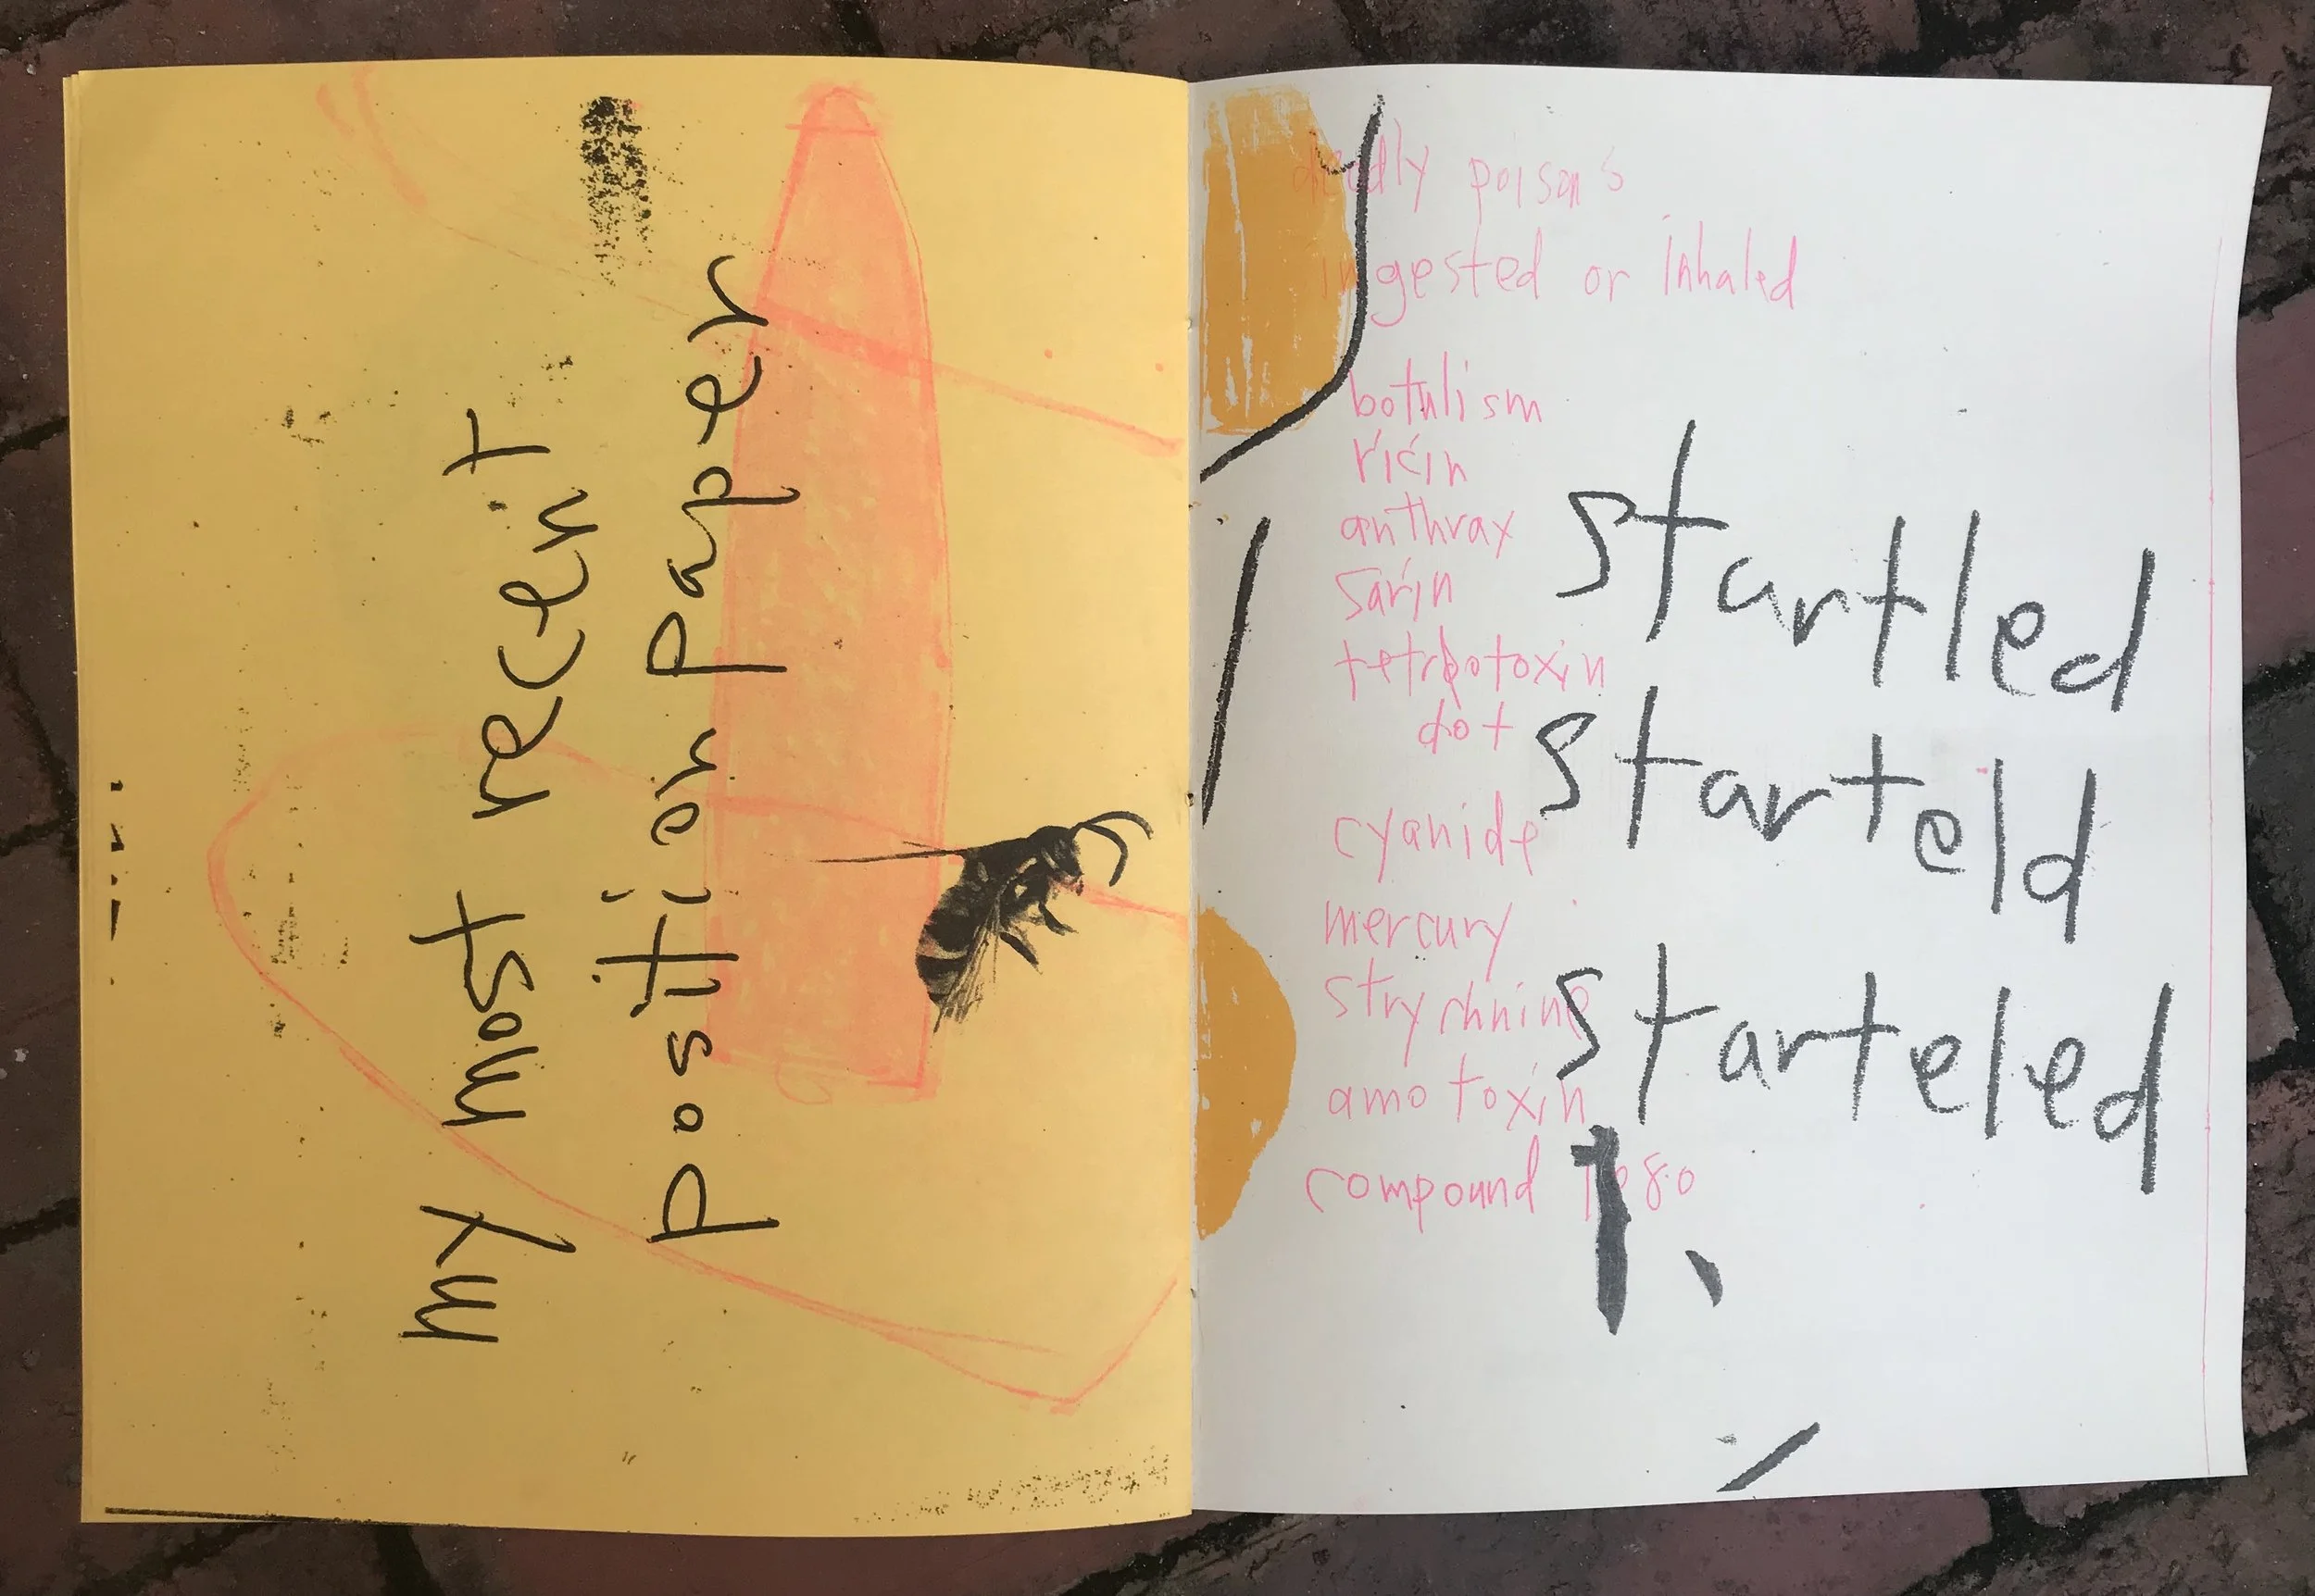 my most recent
position paper
deadly poison's
ingested or inhaled
botulism
ricin
anthrax
sarin
dot
cyanide
mercury
strychnine
amotoxin
compound 1080
startled
starteld
starteled